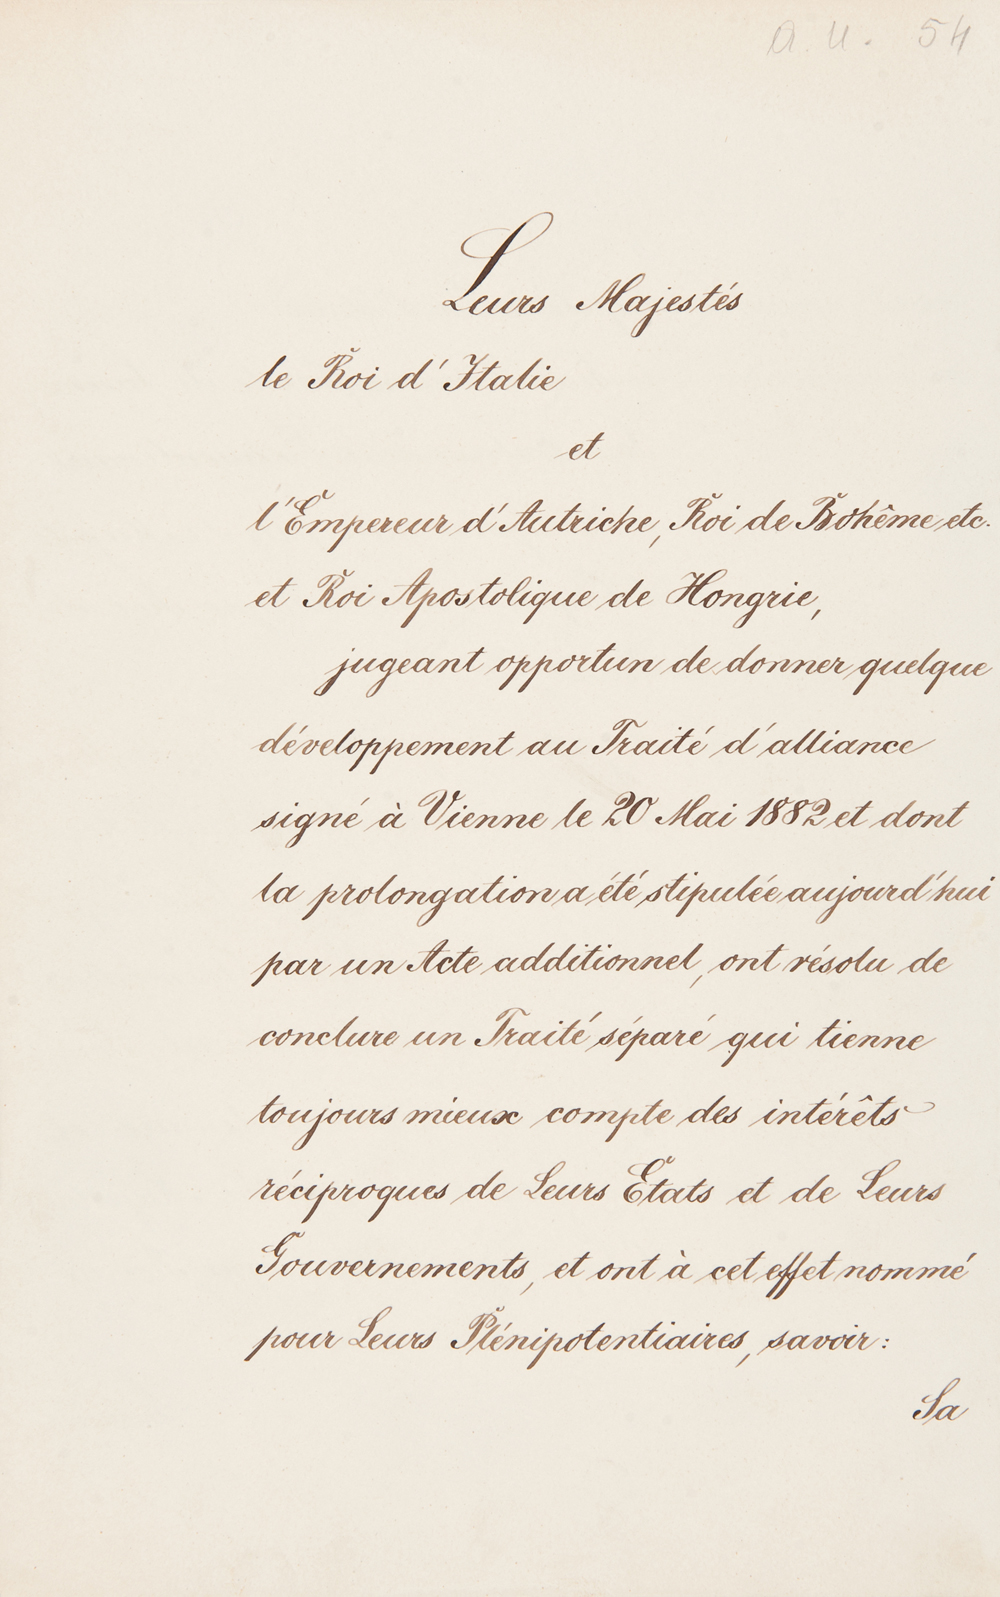 A. U. 54
Leurs Majestés
le Roi d'Italie
et
l'Empereur d'Autriche, Roi de Bohême etc.
et Roi Apostolique de Hongrie,
jugeant opportun de donner quelque
développement au Traité d'alliance
signé à Vienne le 20 Mai 1882 et dont
la prolongation a été stipulée aujourd'hui
par un Acte additionnel, ont résolu de
conclure un Traité séparé qui tienne
toujours mieux compte des intérêts
réciproques de Leurs Etats et de Leurs
Gouvernements, et ont à cet effet nommé
pour Leurs Plénipotentiaires, savoir:
Sa